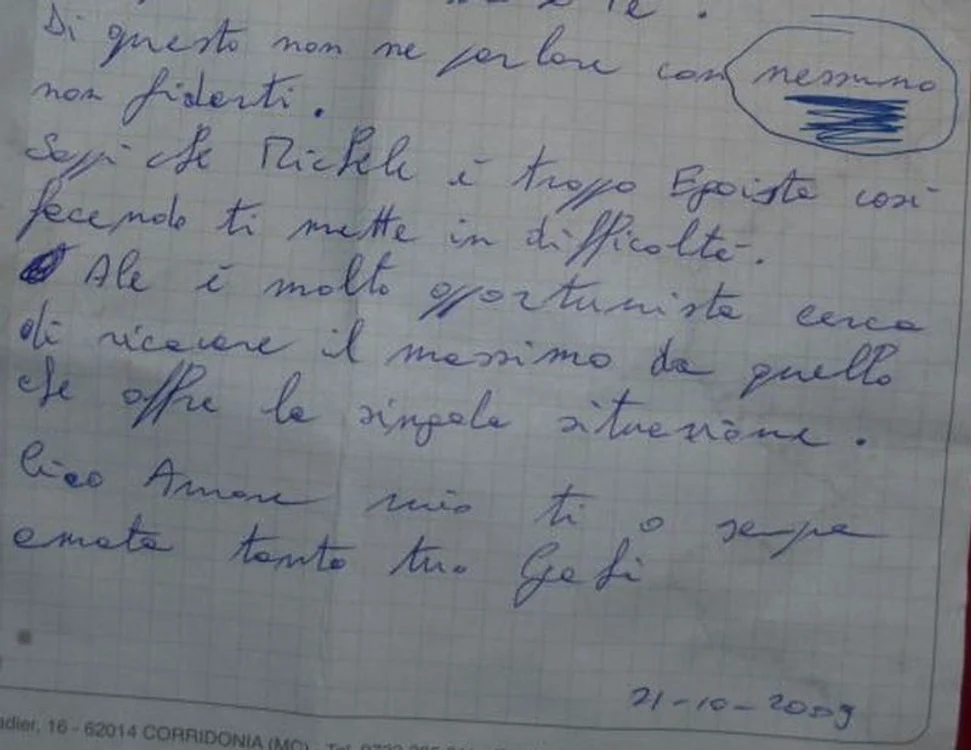 Di questo non ne parlare con nessuno
non fidarti.
Sappi che Michele è troppo Egoista così
facendo ti mette in difficoltà.
Ale è molto opportunista cerca
di ricavare il massimo da quello
che offre la singola situazione.
Ciao Amore mio ti o sempre
amata tanto tuo Gafi
21-10-2009
adier, 16 - 62014 CORRIDONIA (MC)